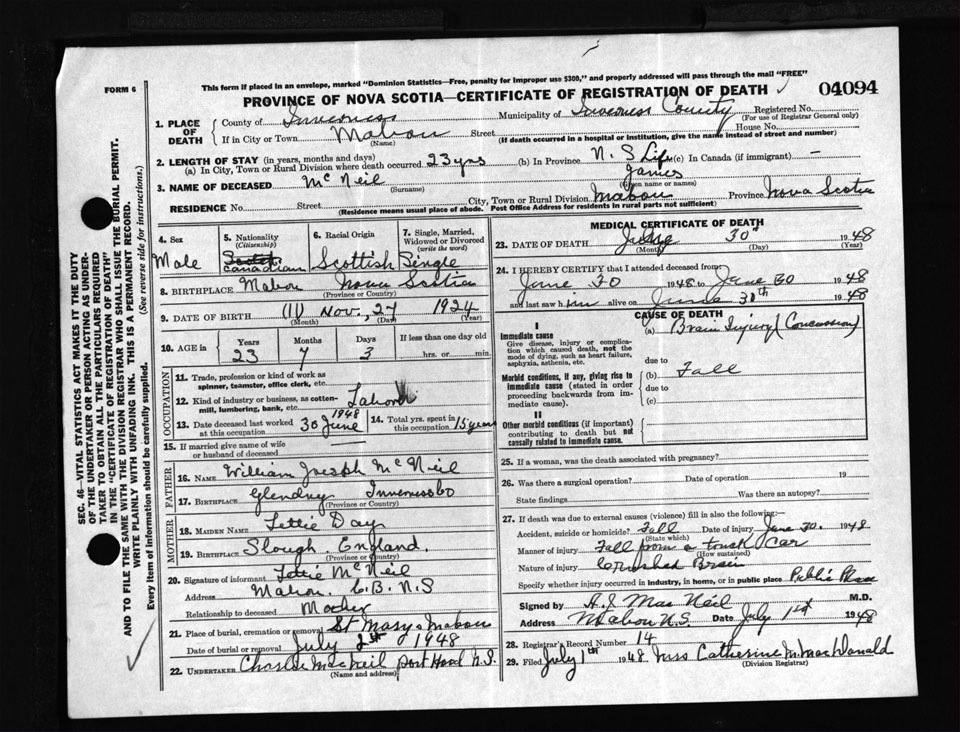 FORM 6
This form if placed in an envelope, marked "Dominion Statistics—Free, penalty for improper use $300," and properly addressed will pass through the mail "FREE"
PROVINCE OF NOVA SCOTIA—CERTIFICATE OF REGISTRATION OF DEATH 04094
1. PLACE OF DEATH County of Inverness Municipality of Inverness County Registered No.
(For use of Registrar General only)
If in City or Town Mabou Street House No.
(Name) (If death occurred in a hospital or institution, give the name instead of street and number)
2. LENGTH OF STAY (in years, months and days)
(a) In City, Town or Rural Division where death occurred 23 yrs (b) In Province N. S Life (c) In Canada (if immigrant) —
3. NAME OF DECEASED Mc Neil James
(Surname) (Given name or names)
RESIDENCE No. Street City, Town or Rural Division Mabou Province Nova Scotia
(Residence means usual place of abode. Post Office Address for residents in rural parts not sufficient)
4. Sex Male
5. Nationality (Citizenship) Canadian
6. Racial Origin Scottish
7. Single, Married, Widowed or Divorced (write the word) Single
8. BIRTHPLACE Mabou Nova Scotia
(Province or Country)
9. DATE OF BIRTH (11) Nov. 27 1924
(Month) (Day) (Year)
10. AGE in Years 23 Months 7 Days 3 If less than one day old hrs. or min.
OCCUPATION
11. Trade, profession or kind of work as spinner, teamster, office clerk, etc.
12. Kind of industry or business, as cotton-mill, lumbering, bank, etc. Labor
13. Date deceased last worked at this occupation 30 June 1948
14. Total yrs. spent in this occupation 15 years
15. If married give name of wife or husband of deceased
FATHER
16. NAME William Joesph Mc Neil
17. BIRTHPLACE Inverness Co
(Province or Country)
MOTHER
18. MAIDEN NAME Lettie Day
19. BIRTHPLACE Slough. England.
(Province or Country)
20. Signature of informant Lettie Mc Neil
Address Mabou. C.B. N.S
Relationship to deceased Mother
21. Place of burial, cremation or removal St Marys Mabou
Date of burial or removal July 2st 1948
22. UNDERTAKER Charlie MacNeil Port Hood N.S.
(Name and address)
MEDICAL CERTIFICATE OF DEATH
23. DATE OF DEATH 30 1948
(Month) (Day) (Year)
24. I HEREBY CERTIFY that I attended deceased from
June 30 1948 to June 30 1948
and last saw him alive on June 30th 1948
CAUSE OF DEATH
I
Immediate cause
Give disease, injury or complication which caused death, not the mode of dying, such as heart failure, asphyxia, asthenia, etc.
(a) Brain Injury (Concussion)
due to
Morbid conditions, if any, giving rise to immediate cause (stated in order proceeding backwards from immediate cause).
(b) Fall
due to
(c)
II
Other morbid conditions (if important) contributing to death but not causally related to immediate cause.
25. If a woman, was the death associated with pregnancy?
26. Was there a surgical operation? Date of operation 19
State findings Was there an autopsy?
27. If death was due to external causes (violence) fill in also the following:—
Accident, suicide or homicide? Fall Date of injury June 30. 1948
(State which)
Manner of injury Fall from a car
(How sustained)
Nature of injury Crushed Brain
Specify whether injury occurred in industry, in home, or in public place Public Place
Signed by A.J. Mac Neil M.D.
Address Mabou N.S. Date July 1st 1948
28. Registrar's Record Number 14
29. Filed July 1th 1948 Mrs Catherine M. MacDonald
(Division Registrar)
SEC. 46—VITAL STATISTICS ACT MAKES IT THE DUTY
OF THE UNDERTAKER OR PERSON ACTING AS UNDERTAKER TO OBTAIN ALL THE PARTICULARS REQUIRED
IN THE "CERTIFICATE OF REGISTRATION OF DEATH"
AND TO FILE THE SAME WITH THE DIVISION REGISTRAR WHO SHALL ISSUE THE BURIAL PERMIT.
WRITE PLAINLY WITH UNFADING INK. THIS IS A PERMANENT RECORD.
Every item of information should be carefully supplied. (See reverse side for instructions.)